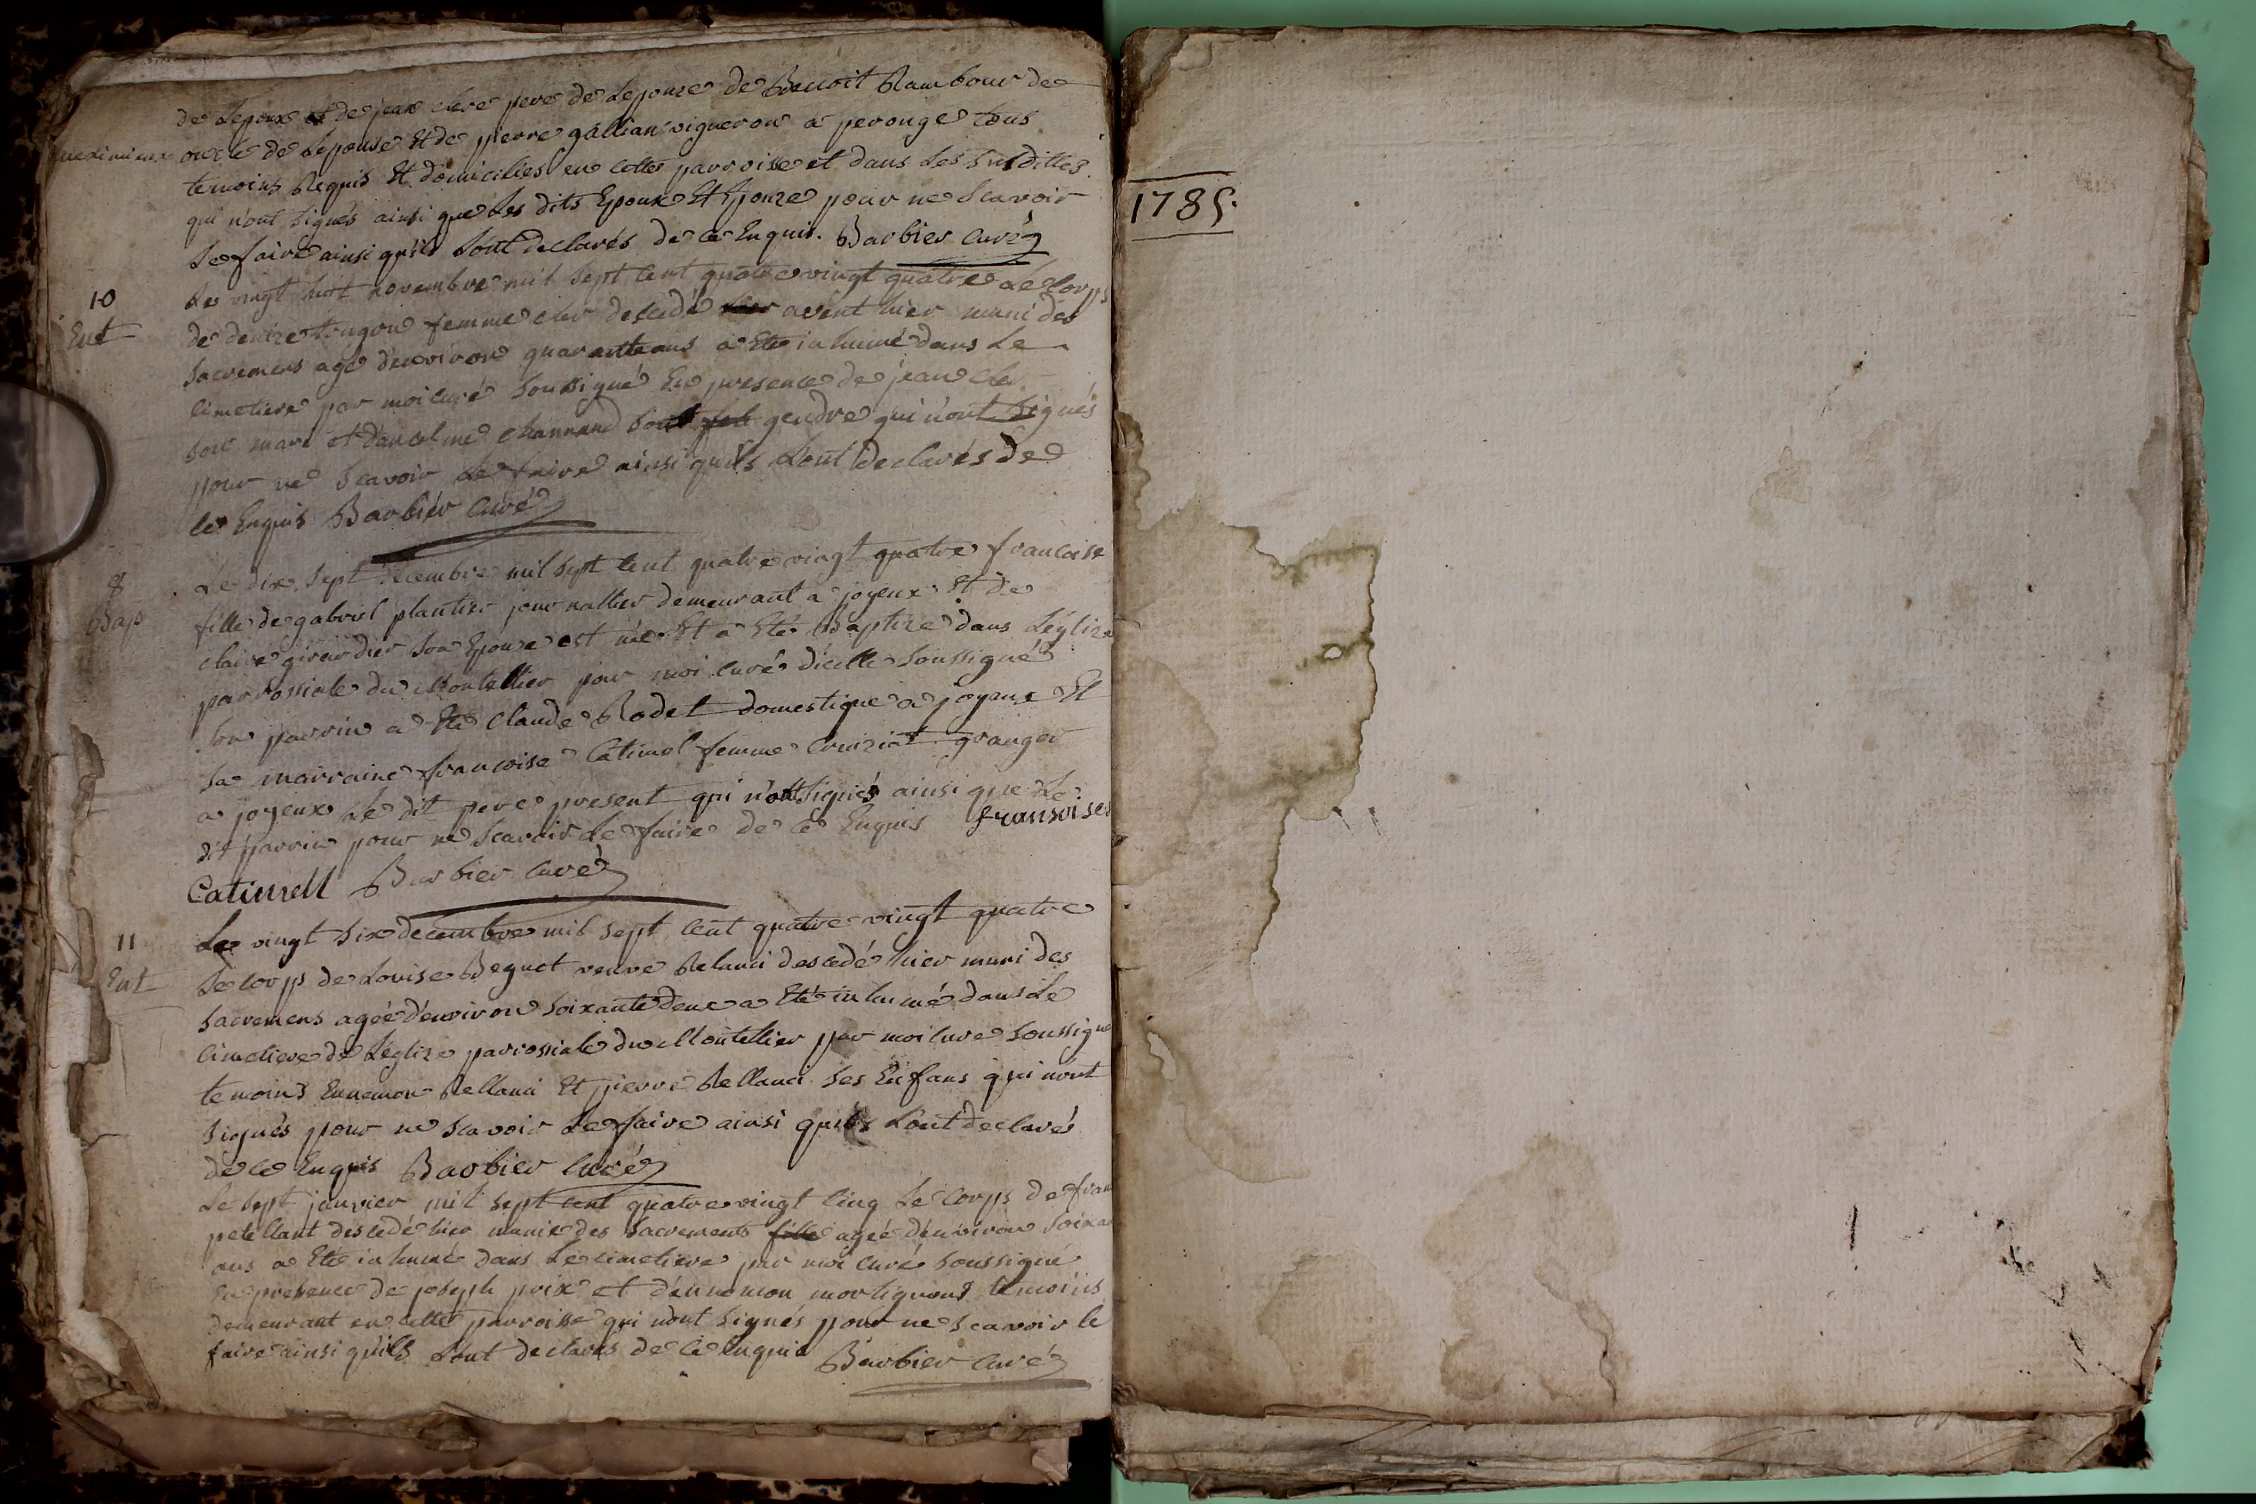 de Lepoux et de jean clere pere de Lepouse de Benoit Rambour de
meximieux oncle de Lepouse Et de pierre gallian vigneron a perouge tous
temoins Requis Et domiciliés en cette parroisse et dans Les susdittes
qui n'ont signés ainsi que Les dits Epoux Et Epouze pour ne Scavoir
Le faire ainsi quils Lont declarés de ce Enquis. Barbier Curé
10
Ent
Le vingt huit novembre mil sept cent quatre vingt quatre Le Corps
de denize femme cler descedé avent hier muni des
Sacremens agé denviron quarante ans a Eté inhumé dans Le
Cimetiere par moi curé Soussigné En presence de jean cler
son mari et dancelme gendre qui n'ont Signés
pour ne Scavoir Le faire ainsi quils Lont declarés de
ce Enquis Barbier Curé
8
Bap
Le dix sept decembre mil sept cent quatre vingt quatre francoise
fille de gabriel plantier journallier demeurant a joyeux Et de
claire girardier son Epouse est née Et a Eté Baptize dans Léglize
parrossiale du Montellier par moi Curé dicelle Soussigné
son parrin a Eté Claude Rodet domestique a joyeux Et
sa marraine francoise Catimel femme Cruiziat granger
a joyeux Le dit pere present qui n'ont Signés ainsi que Le
dit parrin pour ne Scavoir Le faire de ce Enquis fransoises
Catimell Barbier Curé
11
Ent
Le vingt six decembre mil sept cent quatre vingt quatre
Le Corps de Louise Beguet veuve Relanci descedé hier muni des
Sacremens agée denviron Soixante deux a Eté inhumé dans Le
Cimetiere de Léglize parrossiale du Montellier par moi Curé Soussigné
temoins Ennemon Rellanci Et pierre Rellanci Ses Enfans qui n'ont
Signés pour ne Scavoir Le faire ainsi quils Lont declarés
de ce Enquis Barbier Curé
Le sept janvier mil sept cent quatre vingt Cinq Le Corps de fran
petellant descedé hier munie des Sacremens fille agée denviron Soixan
ans a Eté inhumé dans Le Cimetiere par moi Curé Soussigné
En presence de joseph poix et dennemon temoins
demeurant en cette parroisse qui n'ont Signés pour ne Scavoir le
faire ainsi quils Lont declarés de ce Enquis Barbier Curé
1785.